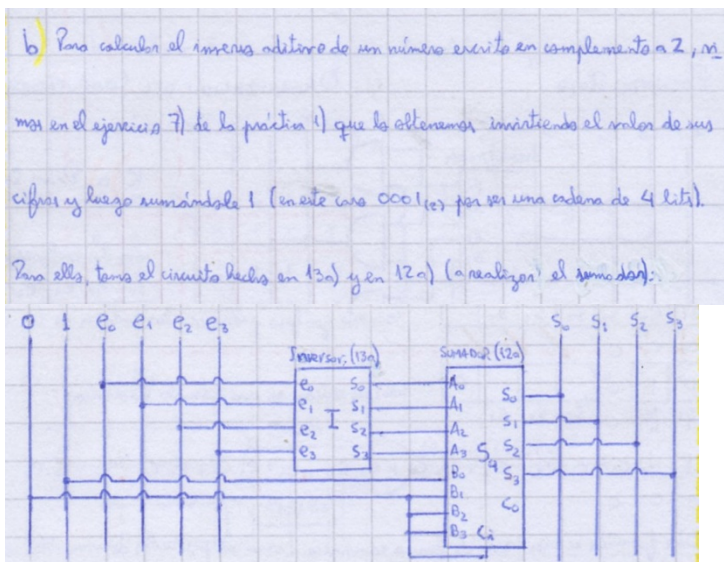 b) Para calcular el inverso aditivo de un número escrito en complemento a 2, vi
mos en el ejercicio 7) de la práctica 1) que lo obtenemos invirtiendo el valor de sus
cifras y luego sumándole 1 (en este caso 0001(2) por ser una cadena de 4 bits).
Para ello, tomo el circuito hecho en 13a) y en 12a) (a realizar el sumador):
0 1 e0 e1 e2 e3 S0 S1 S2 S3
Inversor: (13a) SUMADOR (12a)
e0 S0 A0 S0
e1 S1 A1 S1
I
e2 S2 A2 S2
e3 S3 A3 S4 S3
B0
B1 C0
B2
B3 Ci